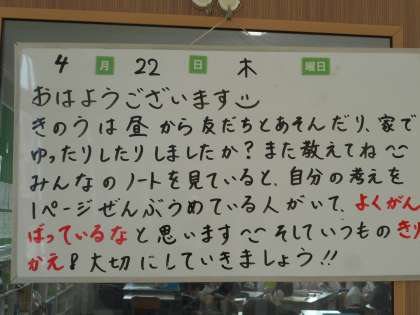 4月22日木曜日
おはようございます
きのうは昼から友だちとあそんだり、家で
ゆったりしたりしましたか?また教えてね
みんなのノートを見ていると、自分の考えを
1ページぜんぶうめている人がいて、よくがん
ばっているなと思います そしていつものきり
かえも大切にしていきましょう!!